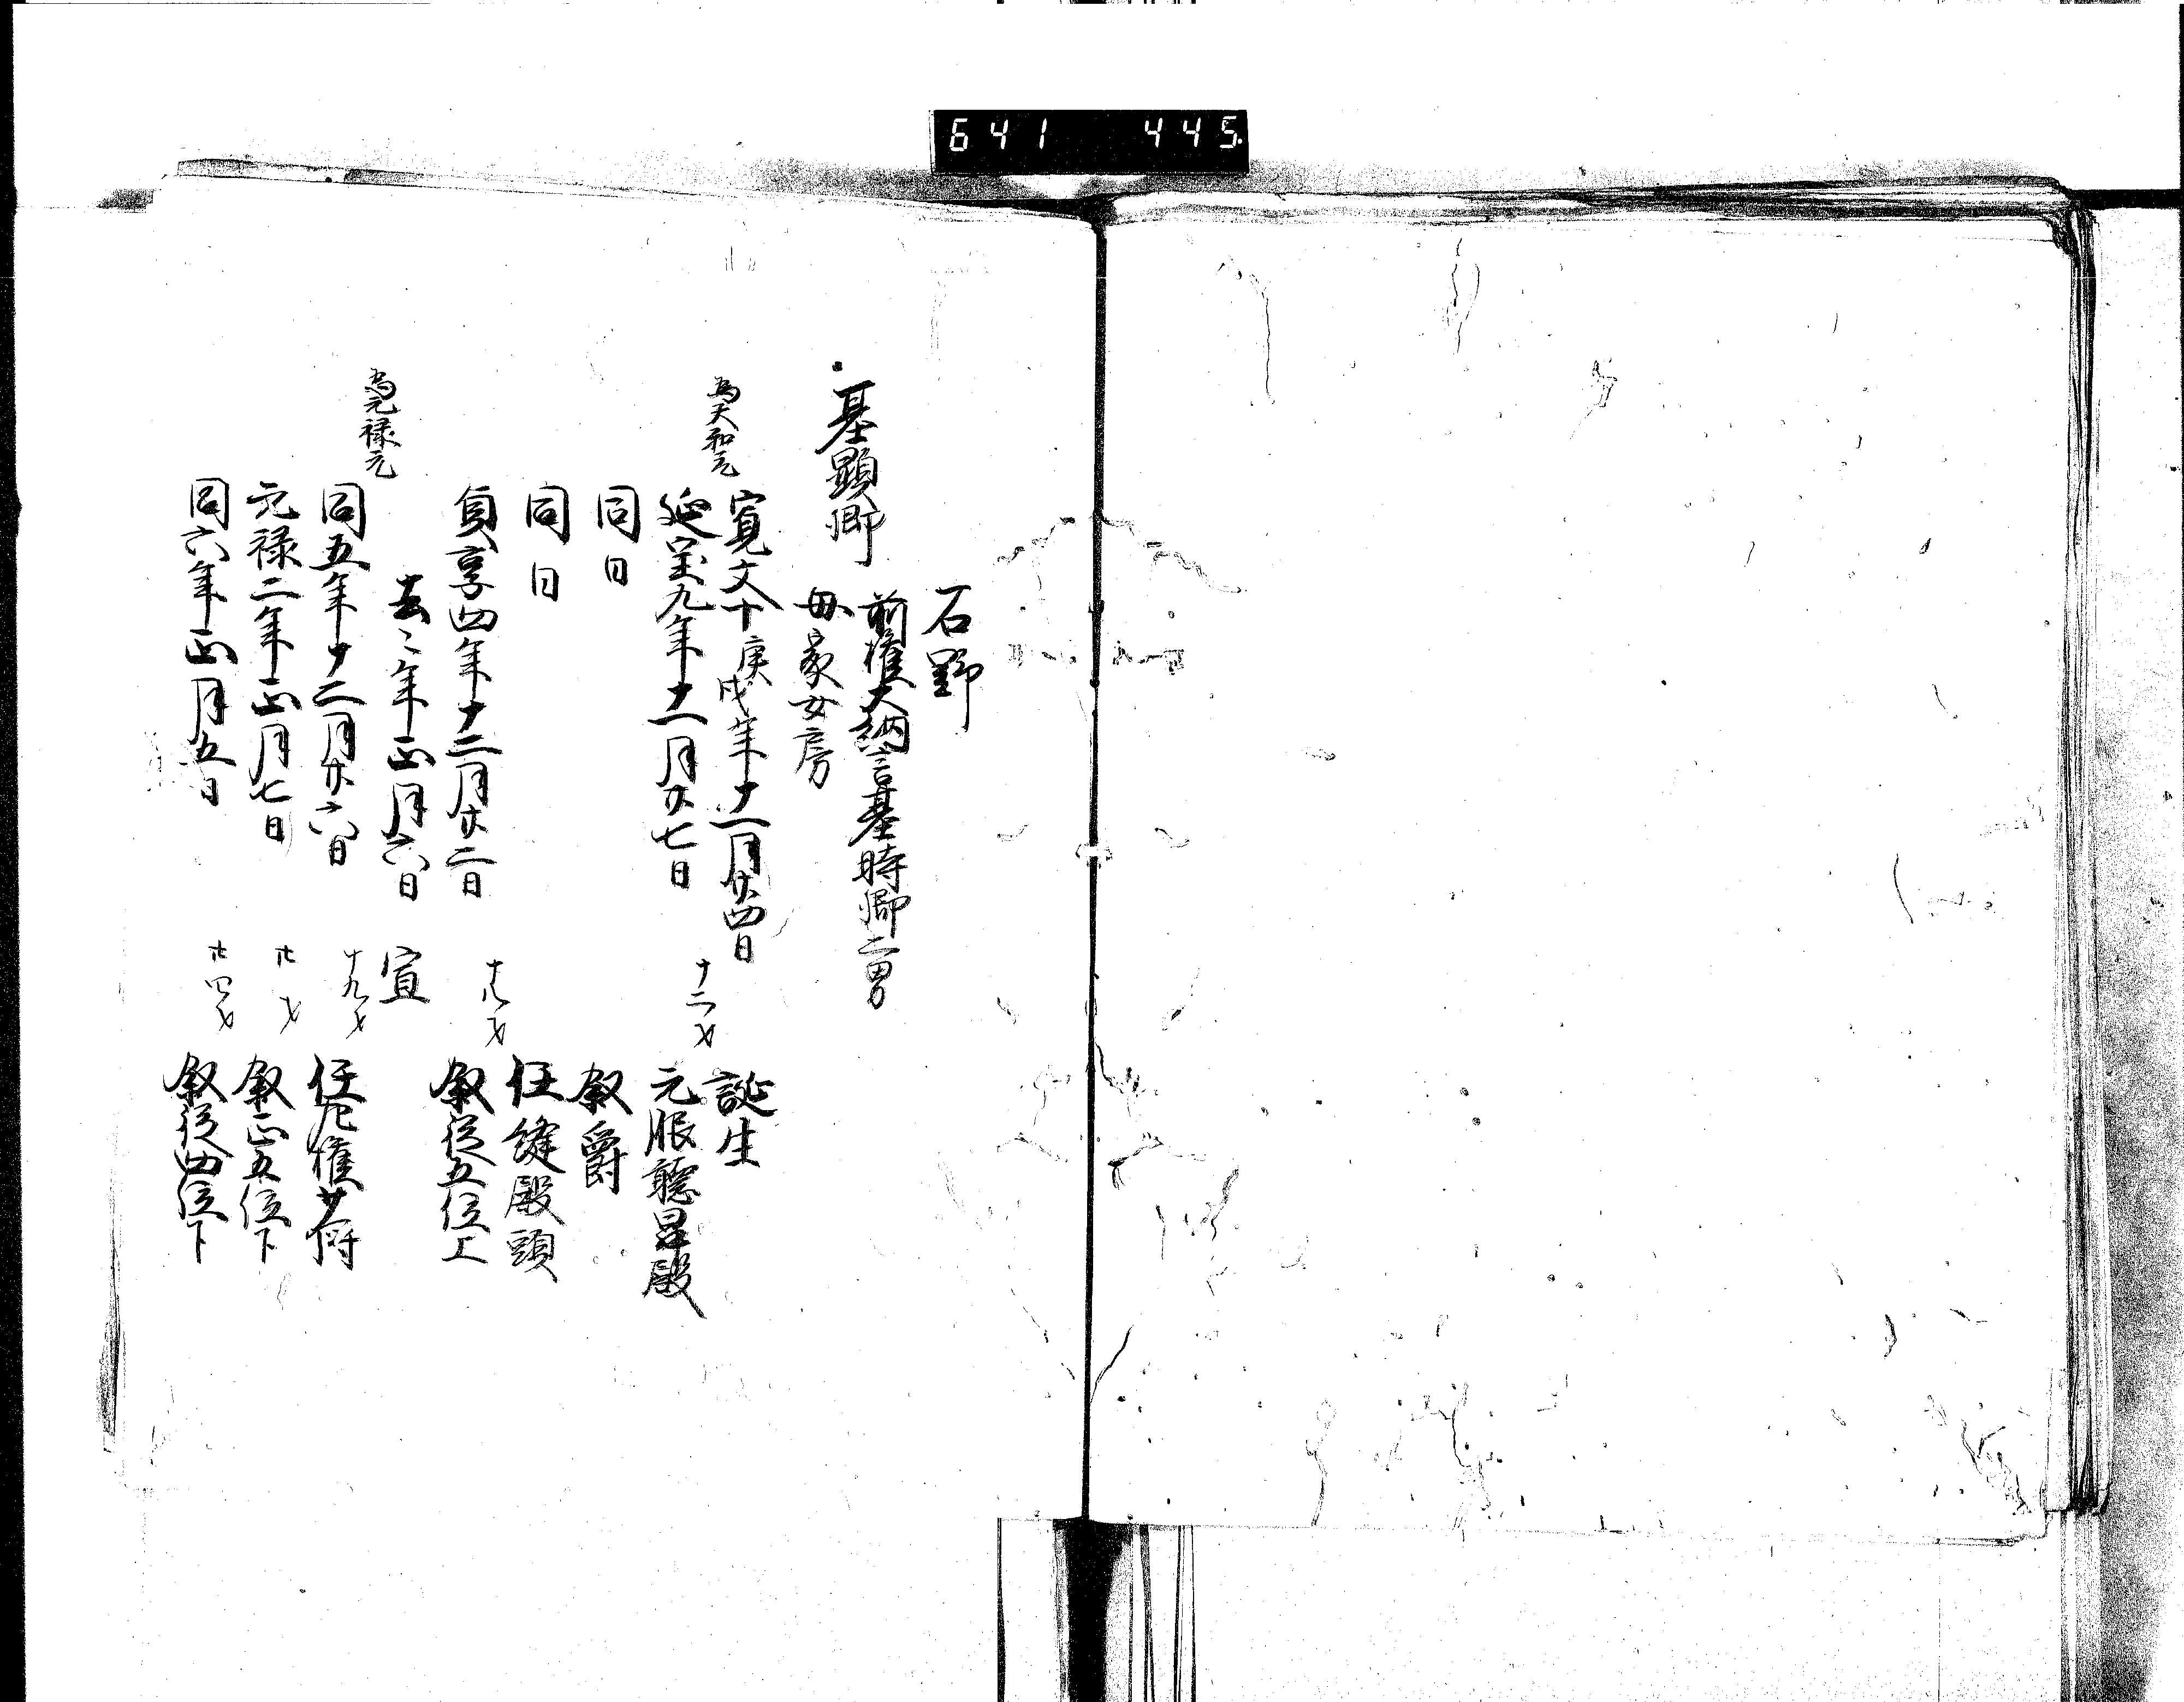 641 445
石野
基顕卿
前権大納言基時卿二男
母家女房
寛文十庚戌年十一月廿四日 誕生
為天和元
延宝九年十一月廿七日 十二才 元服聴昇殿
同日 叙爵
同日 任縫殿頭
貞享四年十二月廿二日 十八才 叙従五位上
去々年正月六日 宣
為元禄元
同五年十二月廿六日 十九才 任左権少将
元禄二年正月七日 廿才 叙正五位下
同六年正月五日 廿四才 叙従四位下